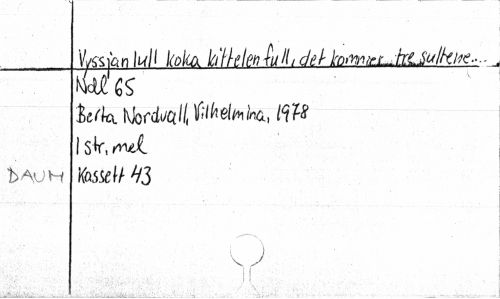 Vyssjan lull koka kittelen full, det kommer tre sultene...
Ndl 65
Berta Nordvall, Vilhelmina, 1978
1 str, mel
DAUM Kassett 43